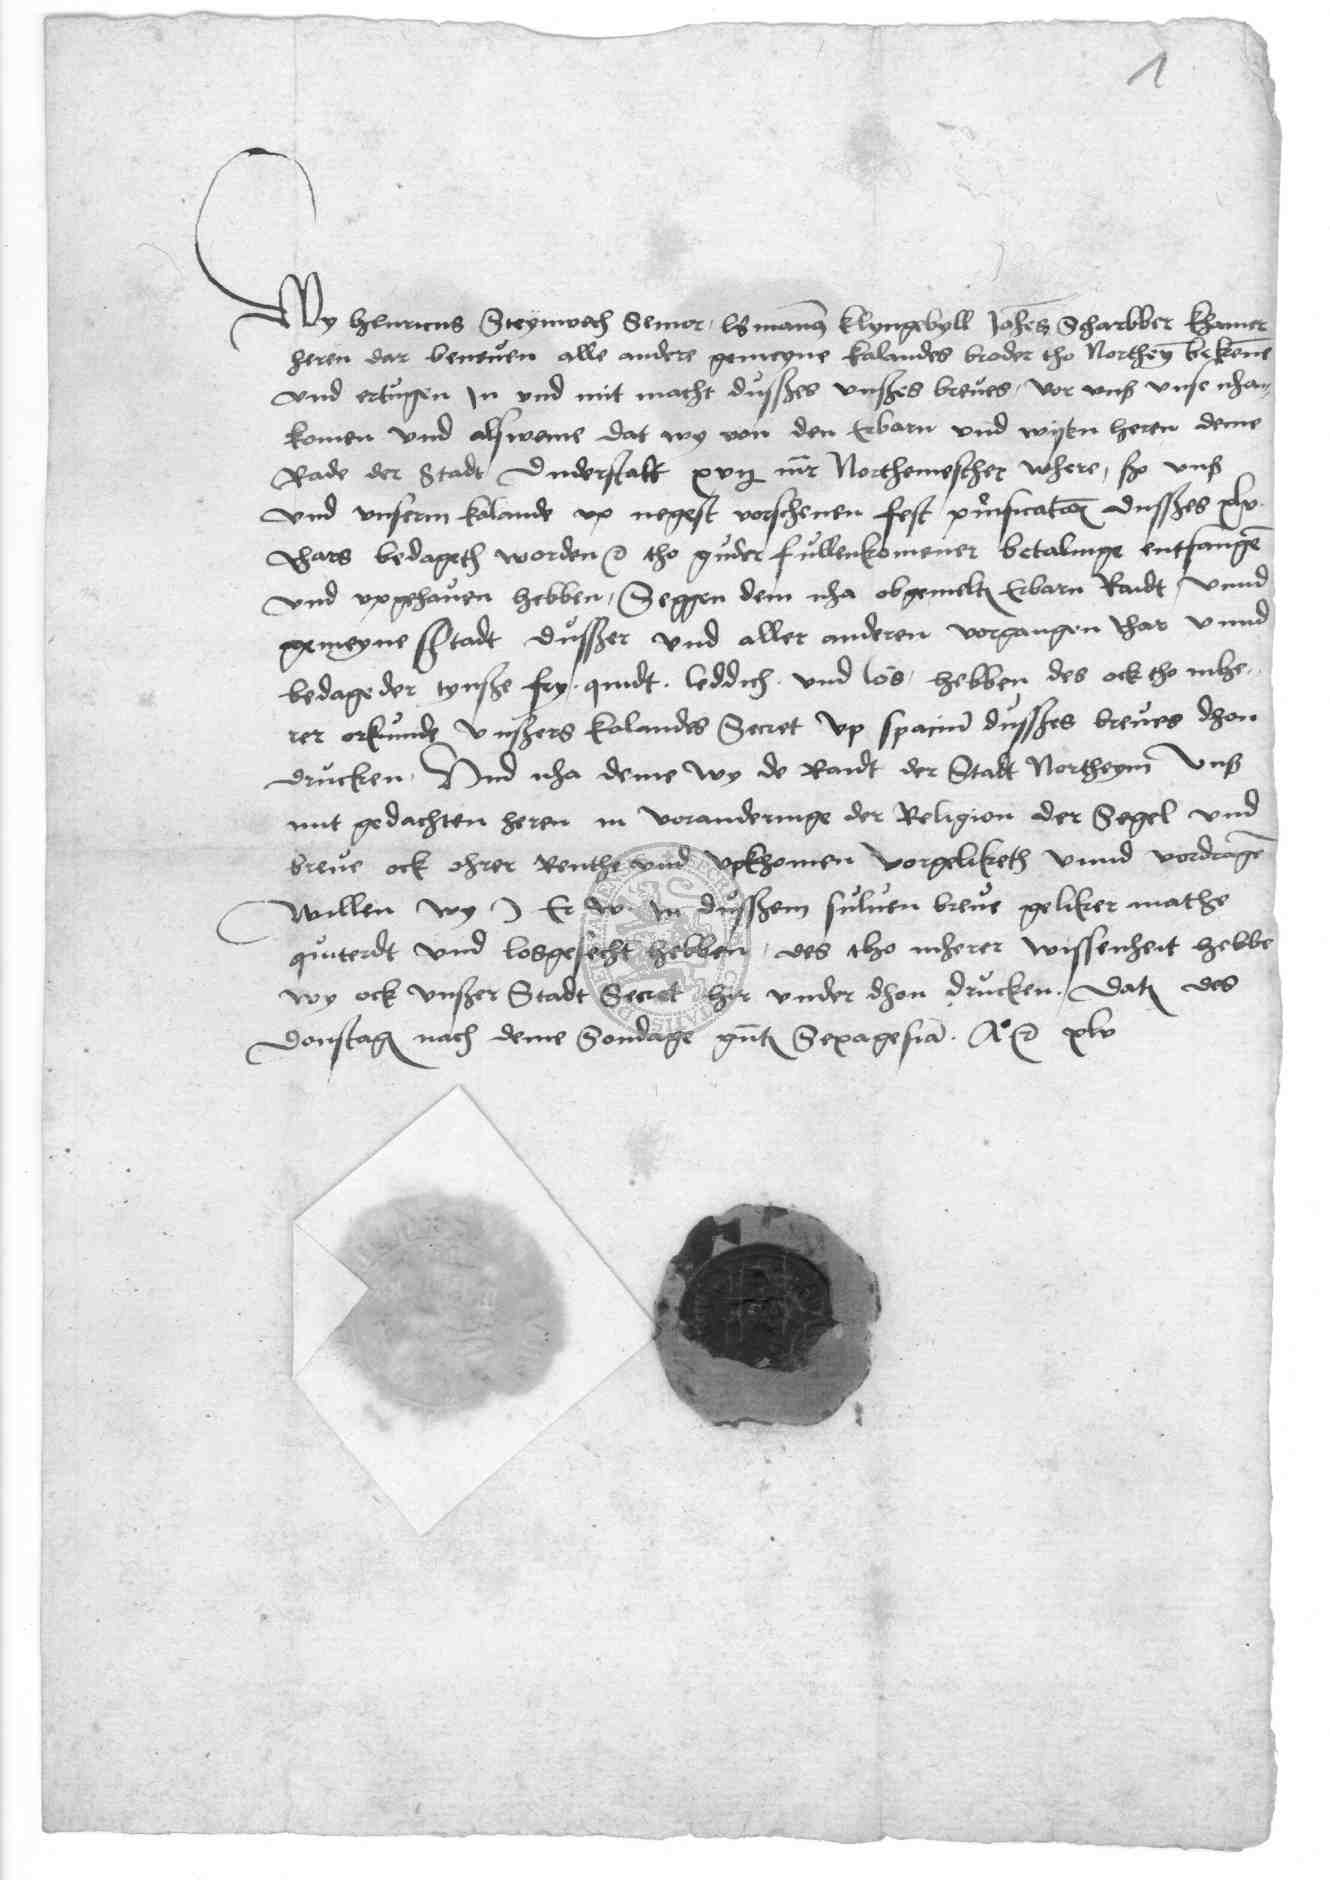 1
Wy Henricus Steynwech Senior, Hermanꝰ Klyngebyll Johēs Scharbber Khamer
heren dar beneuen alle andere gemeyne kalandes broder tho Northeȳ bekēne
vnd ertugen In vnd mit macht dusßes vnßes breues, vor vnß vnse nha-
komen vnd alßweme dat wy von den Erbarn vnd wysen heren deme
Rade der Stadt Duderstatt xvij mr̄ Northemescher where, ßo vnß
vnd vnserm kalande vp negest vorschenen fest purificatiōis dusßes xlv.
Jhars bedageth worden tho guder fullenkomener betalinge entfangē
vnd vpgehauen hebben, Seggen dem nha obgemelten Erbarn Raidt, vnnd
gemeyne Stadt dusßer vnd aller anderen vorgangen Jhar vnnd
bedageder tynße fry. quidt. leddich. vnd loß, hebben des ock tho mhe-
rer orkunde vnßers kalandes Secret vp spaciū dusßes breues dhon
drucken, Vnd nha deme Wy de Raidt der Stadt Northeym vnß
mit gedachten heren in voranderinge der Religion der Segel vnd
breue ock ohrer Renthe vnd vpkhomen vorgeliketh vnnd vordragē
Willen wy J Er W. in dusßem suluen breue geliker mathe
quiterdt vnd losgesecht hebben, des tho mherer wissenheit hebbe
wy ock vnßer Stadt Secret hir vnder dhon drucken. Datū des
Donstages nach deme Sondage gnāt Sexagesimā. Aᵒ xlv